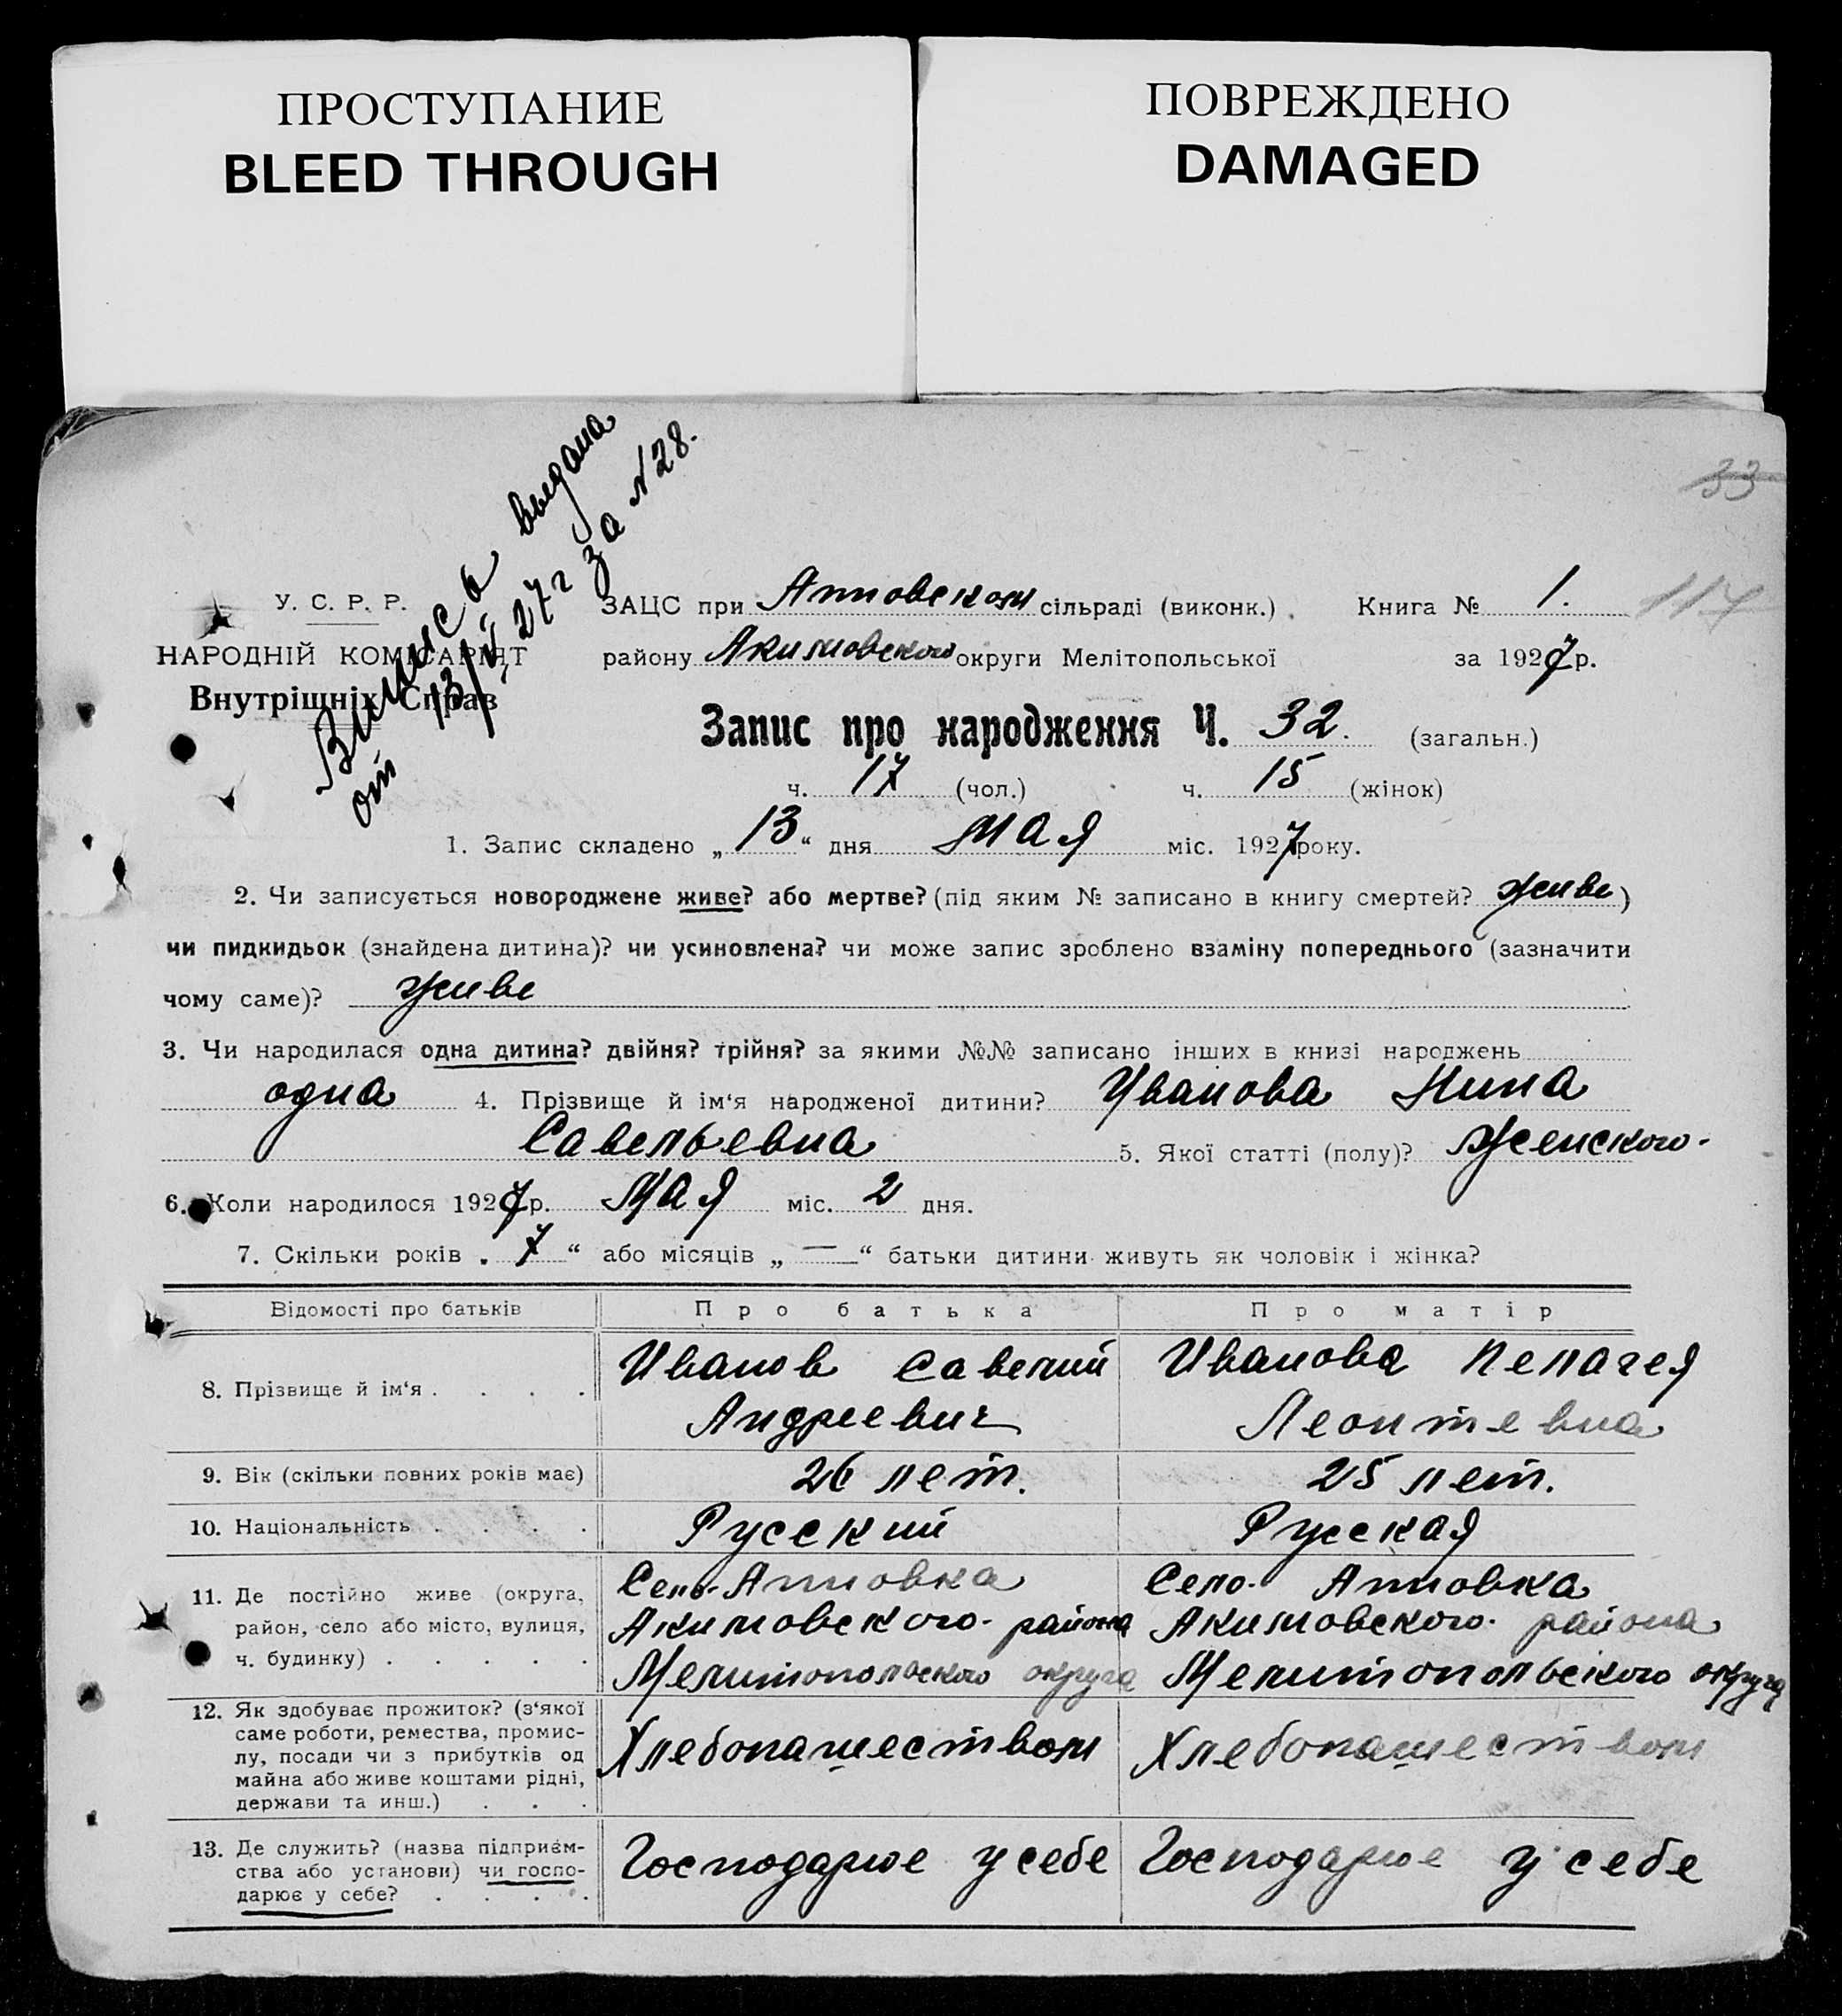 ПРОСТУПАНИЕ
BLEED THROUGH
ПОВРЕЖДЕНО
DAMAGED
33
117
Випись выдана
от 13/V 27 г за N 28.
У. С. Р. Р.
НАРОДНІЙ КОМІСАРІЯТ
Внутрішніх Справ
ЗАЦС при Анновской сільраді (виконк.). Книга № 1.
району Акимовского округи Мелітопольської за 1927 р.
Запис про народження Ч. 32. (загальн.)
ч. 17 (чол.) ч. 15 (жінок)
1. Запис складено „13“ дня мая міс. 1927 року.
2. Чи записується новороджене живе? або мертве? (під яким № записано в книгу смертей? живе)
чи пидкидьок (знайдена дитина)? чи усиновлена? чи може запис зроблено взаміну попереднього (зазначити
чому саме)? живе
3. Чи народилася одна дитина? двійня? трійня? за якими №№ записано інших в книзі народжень
одна 4. Прізвище й ім‘я народженої дитини? Иванова Нина
Савельевна 5. Якої статті (полу)? женского.
6. Коли народилося 1927 р. мая міс. 2 дня.
7. Скільки років „ 7 “ або місяців „ — “ батьки дитини живуть як чоловік і жінка?
Відомості про батьків Про батька Про матір
8. Прізвище й ім‘я . . . . Иванов Савелий Иванова Пелагея
Андреевич Леонтевна
9. Вік (скільки повних років має) 26 лет. 25 лет.
10. Національність . . . . Русский Русская
11. Де постійно живе (округа, Село. Анновка Село. Анновка
район, село або місто, вулиця, Акимовского. района Акимовского. района
ч. будинку) . . . . . Мелитопольского округа Мелитопольского округа
12. Як здобуває прожиток? (з‘якої
саме роботи, ремества, промис-
лу, посади чи з прибутків од Хлебопашеством Хлебопашеством
майна або живе коштами рідні,
держави та инш.) . . .
13. Де служить? (назва підприєм-
ства або установи) чи госпо- Господарює у себе Господарює у себе
дарює у себе? . . . .